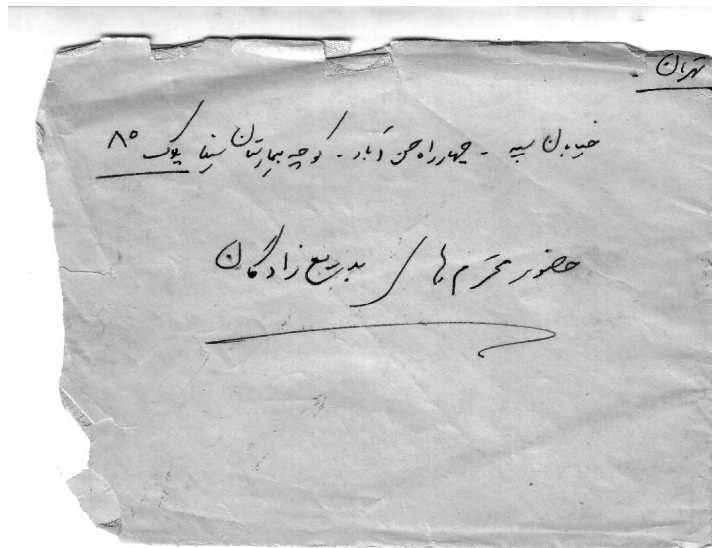 تهران
خیابان سپه - چهارراه حسن آباد - کوچه بیمارستان سینا پلاک ۸۰
حضور محترم بدیع زادگان